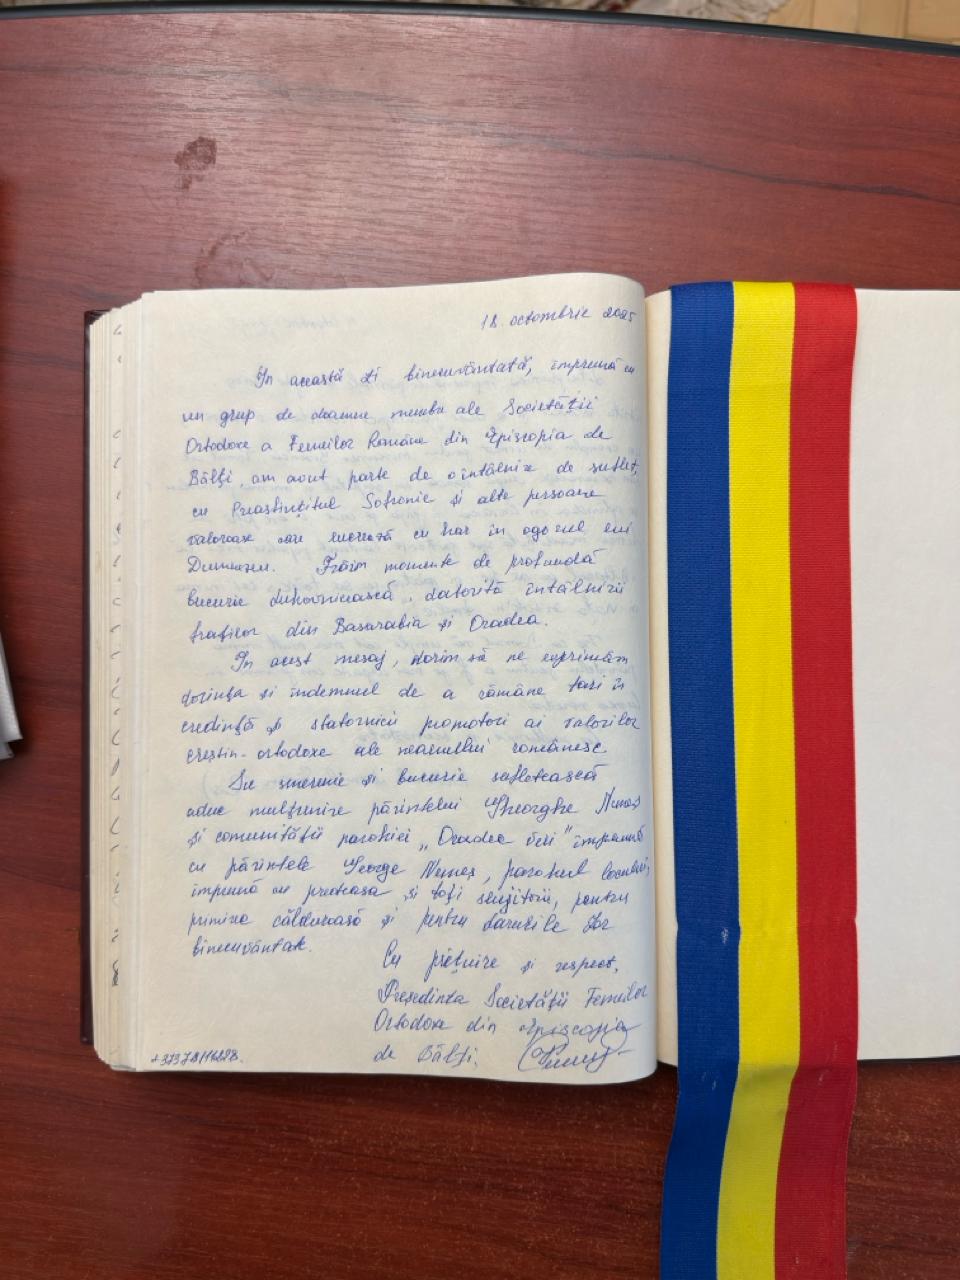 18 octombrie 2025
În această zi binecuvântată, împreună cu
un grup de doamne membre ale Societății
Ortodoxe a Femeilor Române din Episcopia de
Bălți, am avut parte de o întâlnire de suflet,
cu Preasfințitul Sofronie și alte persoane
valoroase care lucrează cu har în ogorul lui
Dumnezeu. Trăim momente de profundă
bucurie duhovnicească, datorită întâlnirii
fraților din Basarabia și Oradea.
În acest mesaj, dorim să ne exprimăm
dorința și îndemnul de a rămâne tari în
credință și statornici promotori ai valorilor
creștin-ortodoxe ale neamului românesc
Cu smerenie și bucurie sufletească
aduc mulțumire părintelui Gheorghe Nemeș
și comunității parohiei „Oradea Veri" împreună
cu părintele George Nemeș, parohul locului,
împreună cu preoteasa și toți slujitorii, pentru
primirea călduroasă și pentru darurile lor
binecuvântate.
Cu prețuire și respect,
Președinta Societății Femeilor
Ortodoxe din Episcopia
de Bălți.